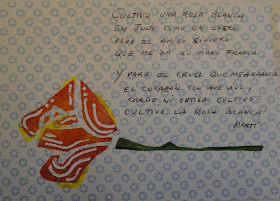 CULTIVO UNA ROSA BLANCA,
EN JULIO COMO EN ENERO
PARA EL AMIGO SINCERO
QUE ME DA SU MANO FRANCA
Y PARA EL CRUEL QUE ME ARRANCA
EL CORAZÓN CON QUE VIVO,
CARDO NI ORTIGA CULTIVO
CULTIVO LA ROSA BLANCA
MARTÍ